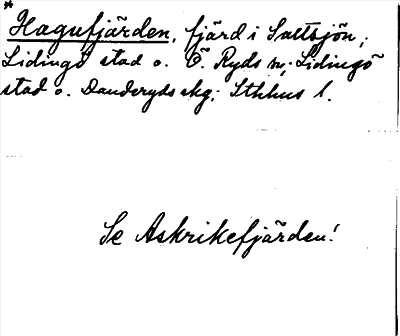 * Hagufjärden, fjärd i Saltsjön;
Lidingö stad o. Ö. Ryds sn; Lidingö
stad o. Danderyds skg; Sthlms l.
Se Askrikefjärden!